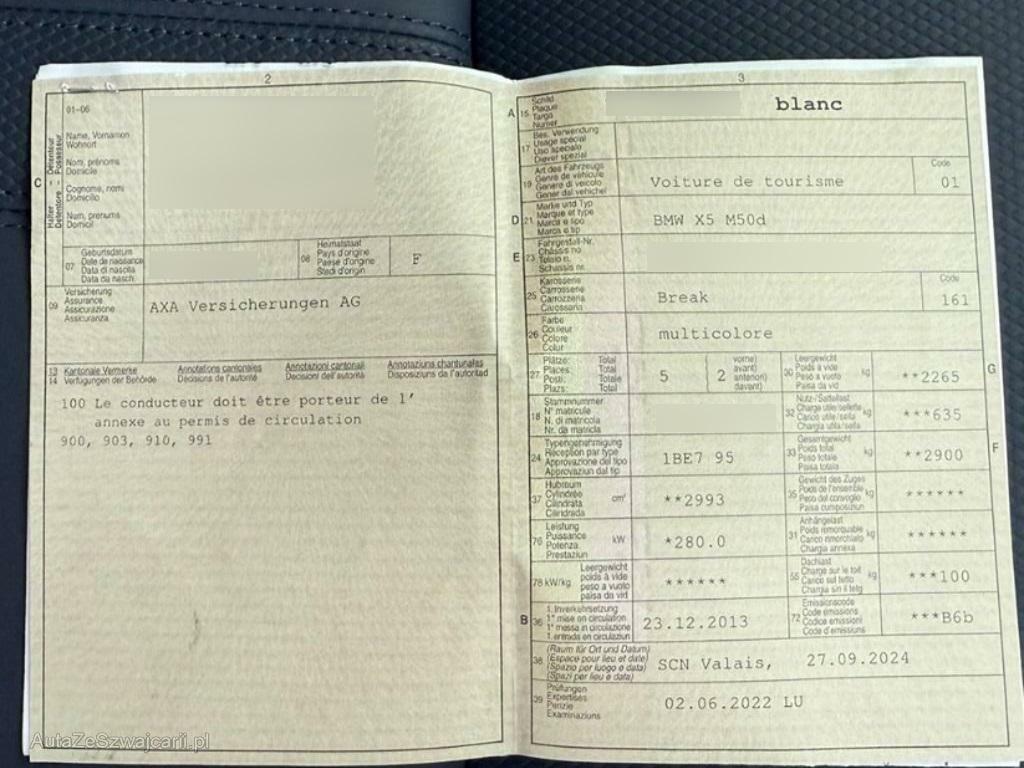 2
01-06
Name, Vornamen
Wohnort
Nom, prénoms
Domicile
Cognome, nomi
Domicilio
Num, prenums
Domicil
C
Halter Détenteur
Detentore - Possessur
07
Geburtsdatum
Date de naissance
Data di nascita
Data da nasch.
08
Heimatstaat
Pays d'origine
Paese d'origine
Stadi d'origin
F
09
Versicherung
Assurance
Assicurazione
Assicuranza
AXA Versicherungen AG
13 Kantonale Vermerke Annotations cantonales Annotazioni cantonali Annotaziuns chantunalas
14 Verfügungen der Behörde Décisions de l'autorité Decisioni dell'autorità Disposiziuns da l'autoritad
100 Le conducteur doit être porteur de l'
annexe au permis de circulation
900, 903, 910, 991
3
A 15
Schild
Plaque
Targa
Numer
blanc
17
Bes. Verwendung
Usage spécial
Uso speciale
Diever spezial
19
Art des Fahrzeugs
Genre de véhicule
Genere di veicolo
Gener dal vehichel
Voiture de tourisme
Code
01
D 21
Marke und Typ
Marque et type
Marca e tipo
Marca e tip
BMW X5 M50d
E 23
Fahrgestell-Nr.
Châssis no
Telaio n.
Schassis nr.
25
Karosserie
Carrosserie
Carrozzeria
Carossaria
Break
Code
161
26
Farbe
Couleur
Colore
Colur
multicolore
27
Plätze: Total
Places: Total
Posti: Totale
Plazs: Total
5
( 2
vorne)
avant)
anteriori)
davant)
30
Leergewicht
Poids à vide
Peso a vuoto
Paisa da vid
kg
**2265
G
18
Stammnummer
N° matricule
N. di matricola
Nr. da matricla
32
Nutz-/Sattellast
Charge utile/sellette
Carico utile/sella
Chargia utila/sella
kg
***635
24
Typengenehmigung
Réception par type
Approvazione del tipo
Approvaziun dal tip
1BE7 95
33
Gesamtgewicht
Poids total
Peso totale
Paisa totala
kg
**2900
F
37
Hubraum
Cylindrée
Cilindrata
Cilindrada
cm³
**2993
35
Gewicht des Zuges
Poids de l'ensemble
Peso del convoglio
Paisa cumposiziun
kg
******
76
Leistung
Puissance
Potenza
Prestaziun
kW
*280.0
31
Anhängelast
Poids remorquable
Carico rimorchiato
Chargia annexa
kg
******
78 kW/kg
Leergewicht
poids à vide
peso a vuoto
paisa da vid
******
55
Dachlast
Charge sur le toit
Carico sul tetto
Chargia sin il tetg
kg
***100
B 36
1. Inverkehrsetzung
1re mise en circulation
1a messa in circolazione
1. entrada en circulaziun
23.12.2013
72
Emissionscode
Code émissions
Codice emissioni
Code d'emissiuns
***B6b
38
(Raum für Ort und Datum)
(Espace pour lieu et date)
(Spazio per luogo e data)
(Spazi per lieu e data)
SCN Valais, 27.09.2024
39
Prüfungen
Expertises
Perizie
Examinaziuns
02.06.2022 LU
AutaZeSzwajcarii.pl